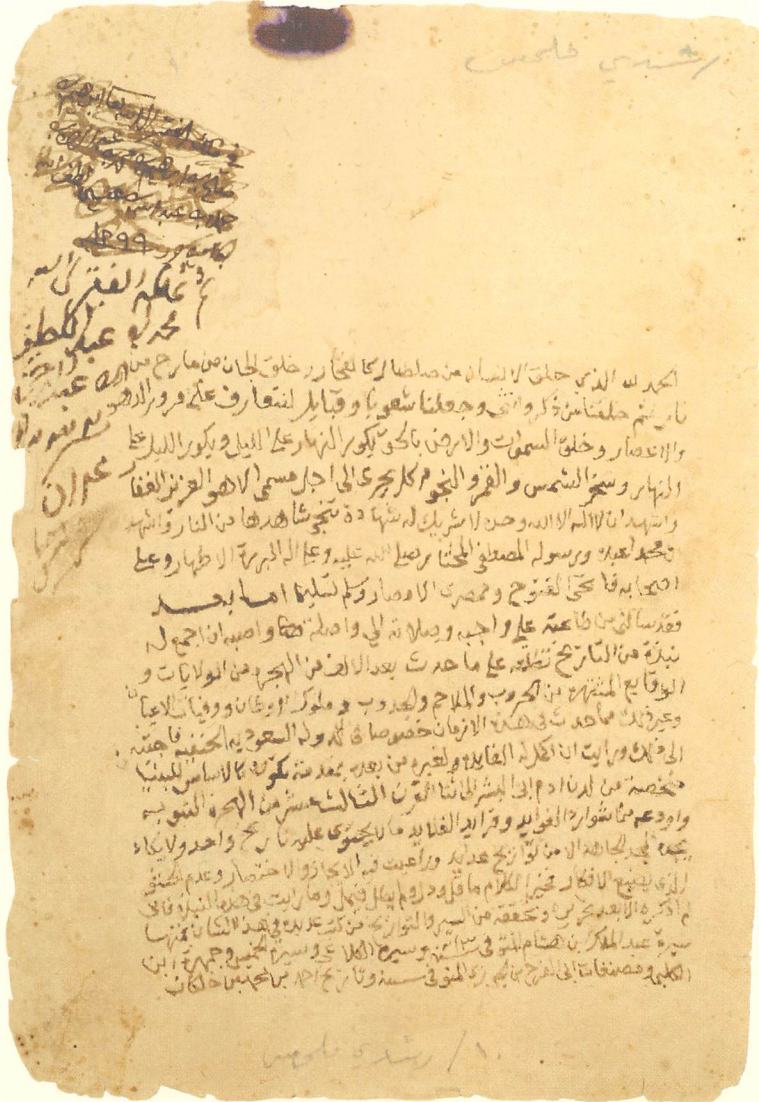 رشدي ملحس
١٢٩٩
ثم تملكه الفقير الى الله
محمد بن عبد اللطيف
الحمد لله الذي خلق الانسان من صلصال كالفخار وخلق الجان من مارج من
نار ثم خلقنا من ذكر وانثى وجعلنا شعوبا وقبايل لنتعارف على مرور الدهور
والاعصار وخلق السموات والارض بالحق يكور النهار على الليل ويكور الليل على
النهار وسخر الشمس والقمر والنجوم كل يجري الى اجل مسمى الا هو العزيز الغفار
واشهد ان لا اله الا الله وحده لا شريك له شهادة تنجي شاهدها من النار واشهد
ان محمدا عبده ورسوله المصطفى المختار صلى الله عليه وعلى اله البررة الاطهار وعلى
اصحابه فاتحي الفتوح وممصري الامصار وسلم تسليما اما بعد
فقد سالني من طاعته علي واجبه وصلاته الي واصلة ان اجمع له
نبذة من التاريخ تطلعه على ما حدث بعد الالف من الهجره من الولايات و
الوقايع المشتهره من الحروب والملاحم والجدوب وملوك الاوطان ووفيات الاعيان
وغير ذلك مما حدث في هذه الازمان خصوصا في الدوله السعوديه الحنفيه فاجبته
الى ذلك ورايت ان اكمل له الفايده ولغيره من بعده بمقدمة تكون كالاساس للبنيان
ملخصة من لدن ادم ابي البشر الى اثنا القرن الثالث عشر من الهجرة النبويه
واودعه من شوارد الفوايد وفرايد القلايد ما لا يحتوي عليه تاريخ واحد ولا يكاد
يجده الجاهد الا من تواريخ عدايد وراعيت فيه الايجاز والاختصار وعدم الحشو
الذي يضيع الافكار فخير الكلام ما قل ودل ولم يطل فيمل وما رايت في هذه النبذة فاني
لم اذكره الا بعد تحريره وتحققه من السير والتواريخ من كتب عديده في هذا الشان فمنها
سيرة عبد الملك بن هشام المتوفى سنة وسيرة الكلاعي وسيرة الخميس وجمهرة ابن
الكلبي ومصنفات ابي الفرج بن الجوزي المتوفى سنة وتاريخ احمد بن محمد بن خلكان
١٠ / رشدي ملحس